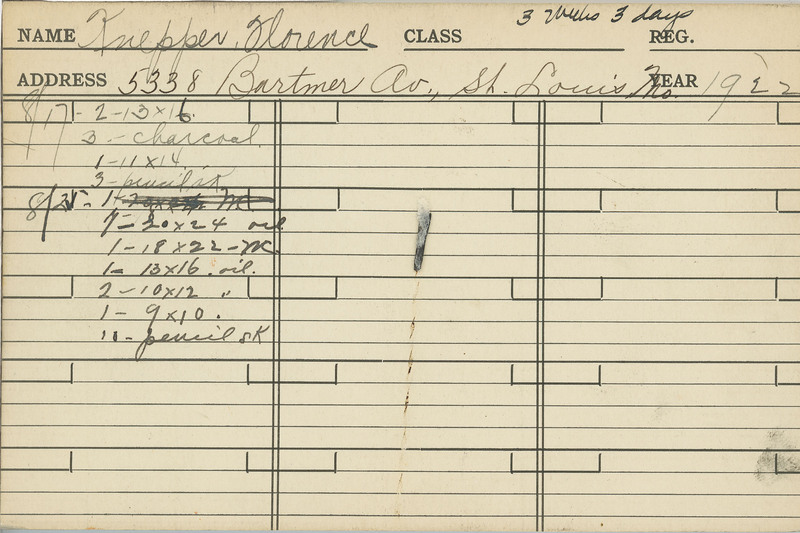 3 weeks 3 days
NAME Knepper, Florence CLASS REG.
ADDRESS 5338 Bartmer Av., St. Louis Mo. YEAR 1922
8/17 - 2-13x16.
3 - charcoal
1-11x14.
3-pencil sk
8/25 - 1-
7-20x24 oil
1-18x22-M.
1-13x16. oil.
2-10x12 "
1-9x10.
11-pencil sk